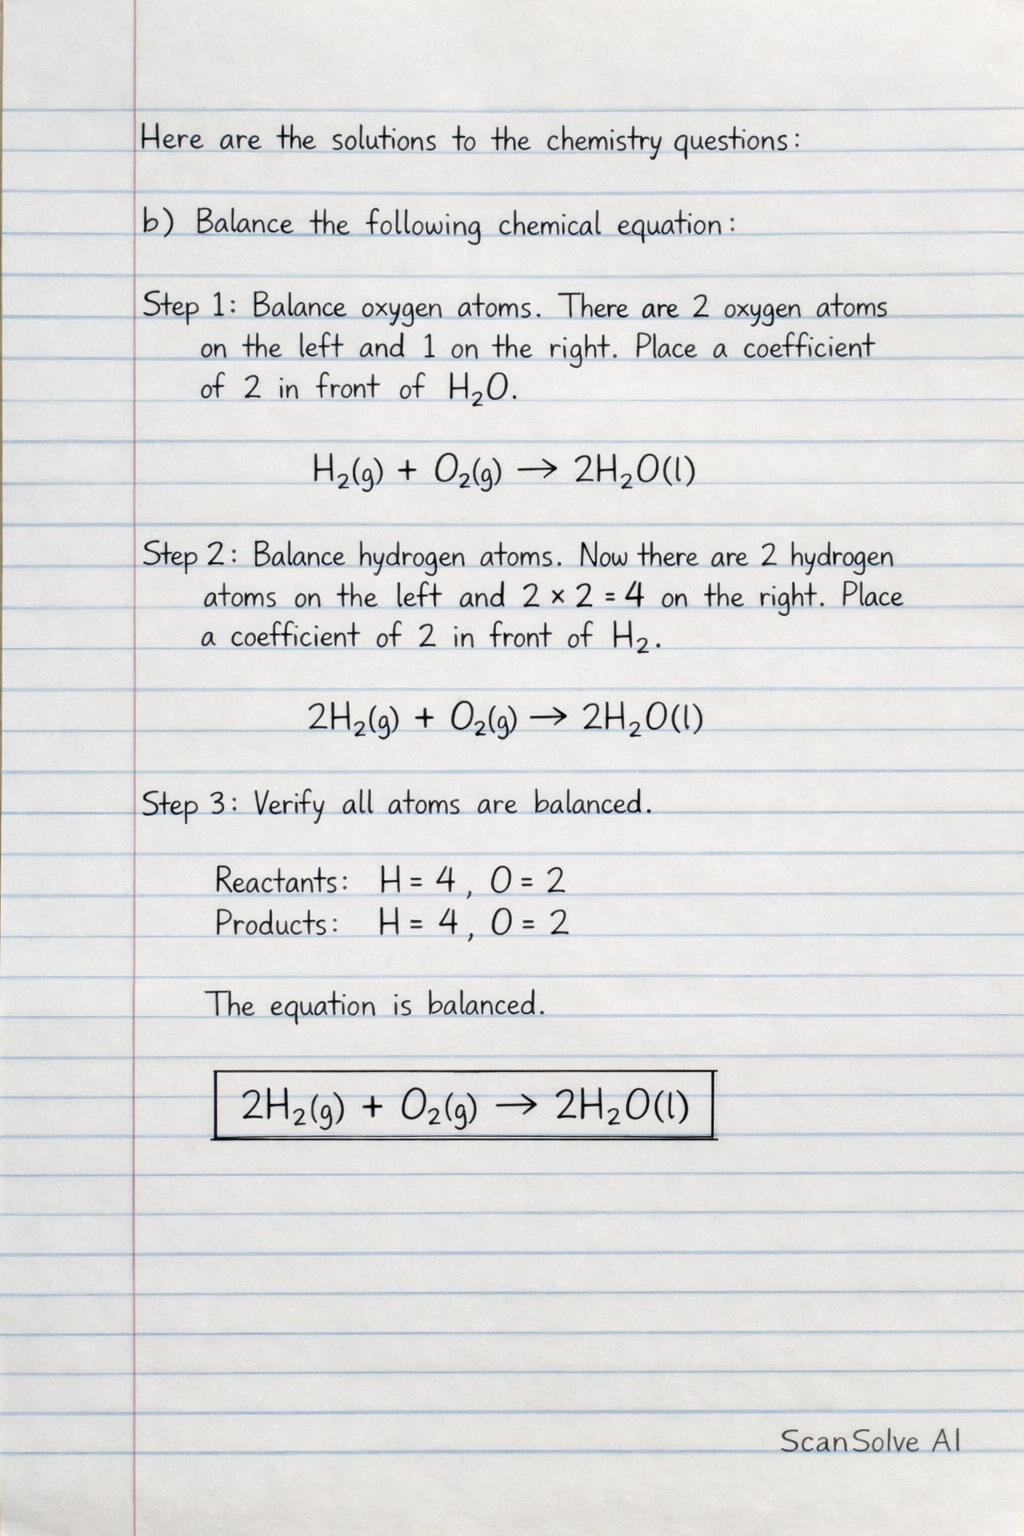 Here are the solutions to the chemistry questions:
b) Balance the following chemical equation:
Step 1: Balance oxygen atoms. There are 2 oxygen atoms
on the left and 1 on the right. Place a coefficient
of 2 in front of H₂O.
H₂(g) + O₂(g) → 2H₂O(l)
Step 2: Balance hydrogen atoms. Now there are 2 hydrogen
atoms on the left and 2 × 2 = 4 on the right. Place
a coefficient of 2 in front of H₂.
2H₂(g) + O₂(g) → 2H₂O(l)
Step 3: Verify all atoms are balanced.
Reactants: H = 4, O = 2
Products: H = 4, O = 2
The equation is balanced.
2H₂(g) + O₂(g) → 2H₂O(l)
ScanSolve AI